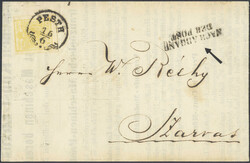 PESTH
16
6
NACH ABGANG
DER POST
Herrn W. Réthy
Szarvas